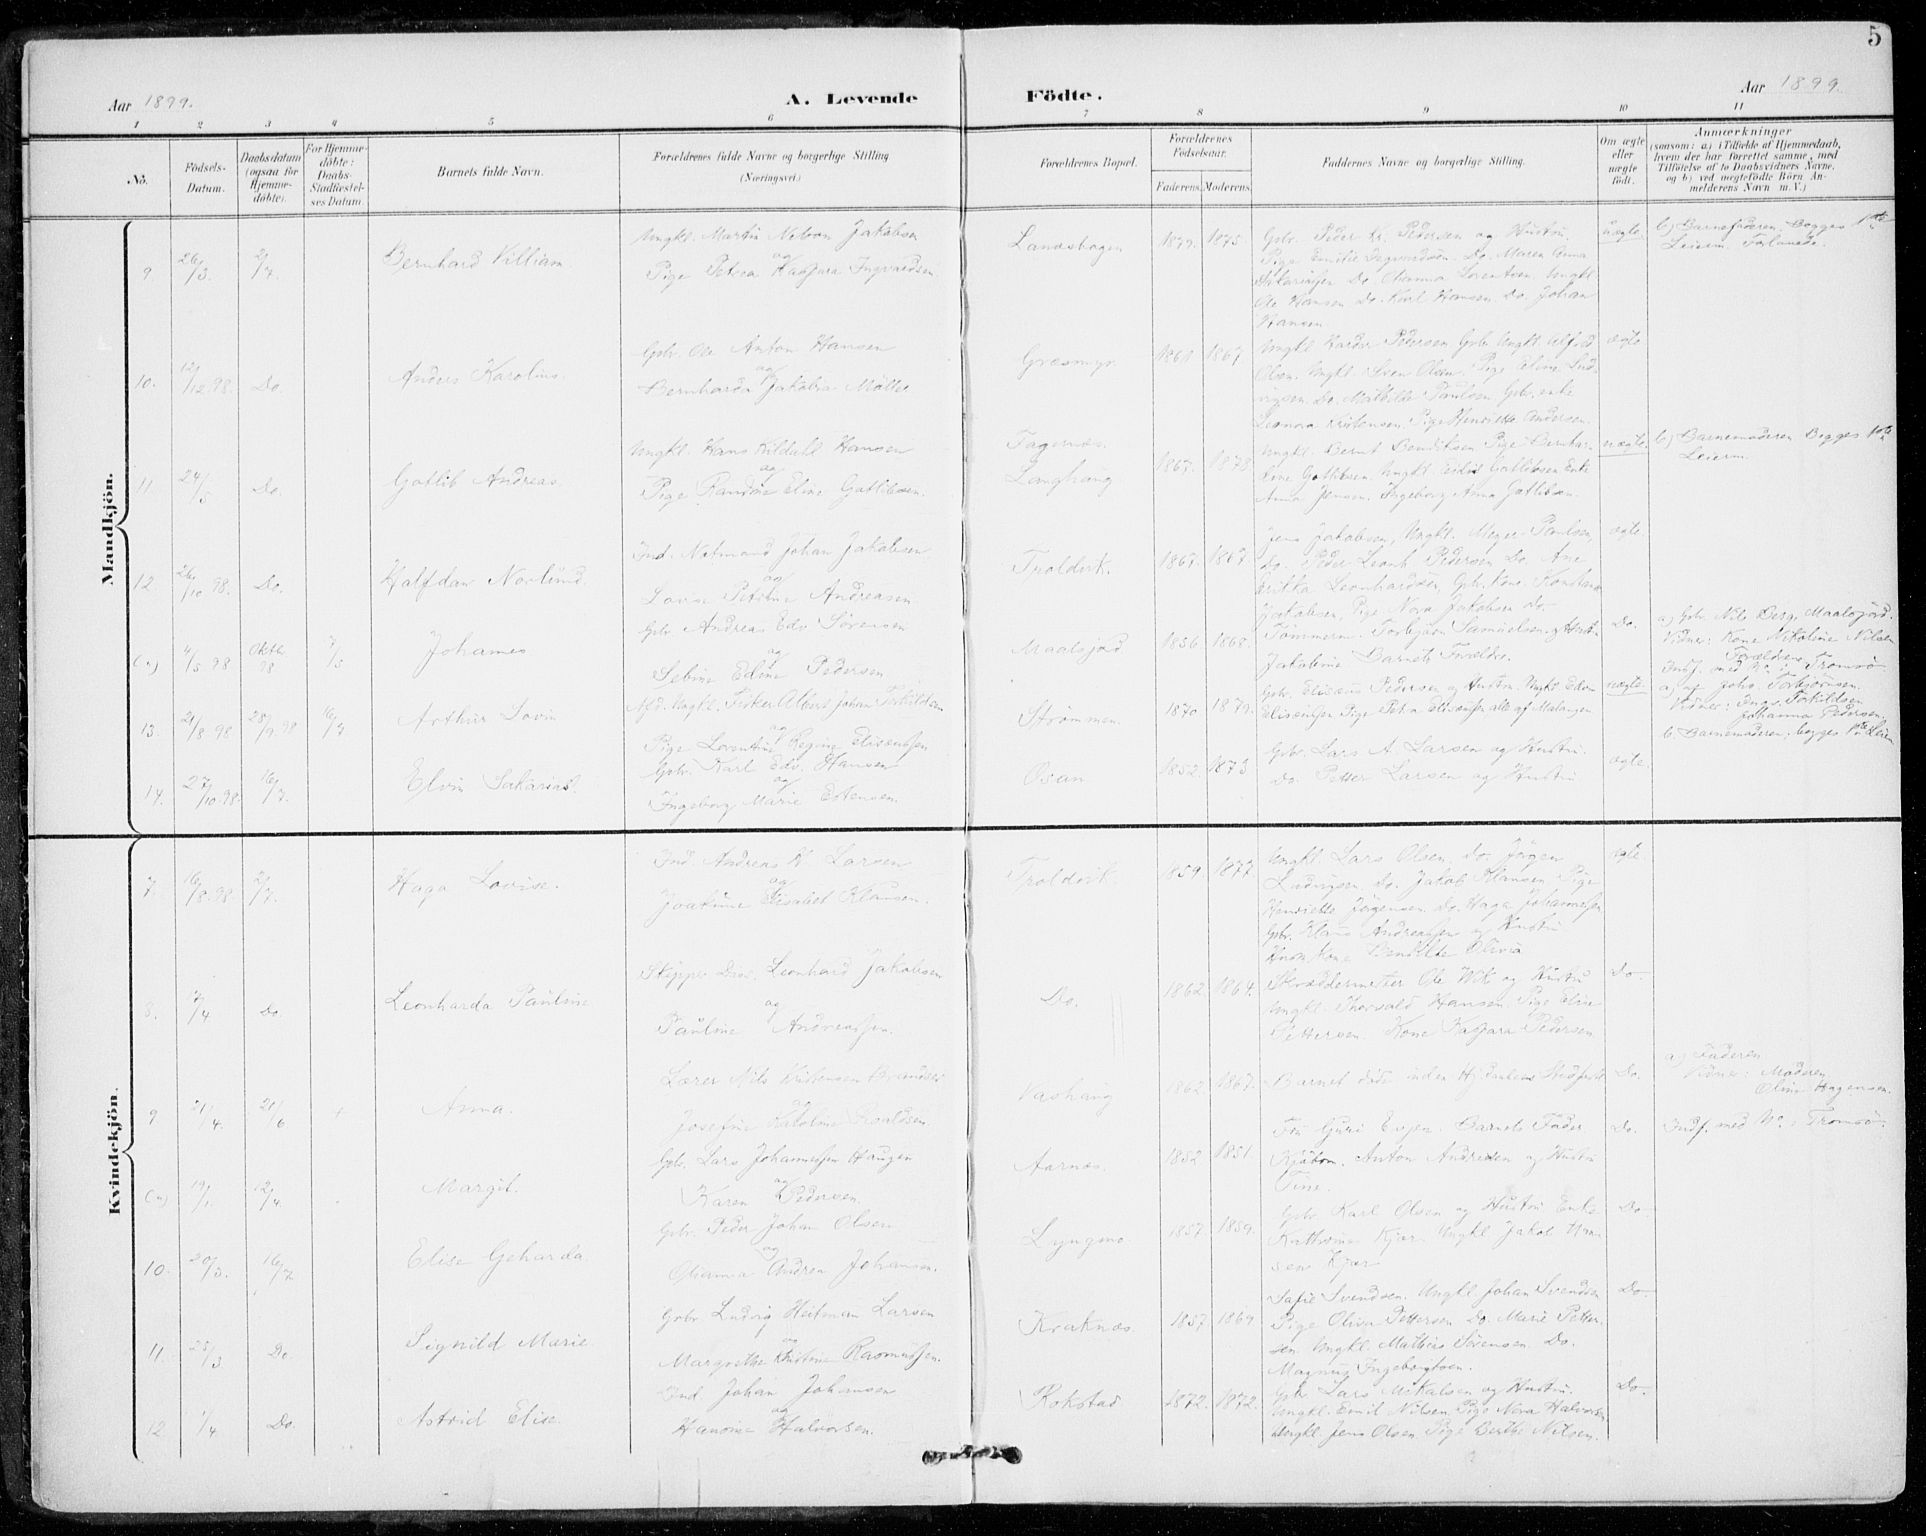 5
Aar 1899.
A. Levende
Födte.
Aar 1899.
1 2 3 4 5 6 7 8 9 10 11
No.
Födsels-
Datum.
Daabsdatum
(ogsaa for
Hjemme-
döbte).
For Hjemme-
döbte:
Daabs-
Stadfæstel-
ses Datum.
Barnets fulde Navn.
Forældrenes fulde Navne og borgerlige Stilling
(Næringsvei.)
Forældrenes Bopæl.
Forældrenes
Födselsaar.
Faderens. Moderens.
Faddernes Navne og borgerlige Stilling.
Om ægte
eller
uægte
födt.
Anmærkninger
(saasom: a.) i Tilfælde af Hjemmedaab,
hvem der har forrettet samme, med
Tilföielse af to Daabsvidners Navne.
og b) ved uægtefödte Börn An-
melderens Navn m. V.)
Mandkjön.
9. 26/3. 2/7. Bernhard Villiam.
Ungkl. Martin Nelson Jakobsen
og
Pige Petrea Kaspara Ingvardsen
Landsbogen 1879. 1875.
Gbr. Peder Kr. Pedersen og Hustru
Pige Emilie Ingvardsen. Do. Maren Anna
Do Olianna Lorentsen. Ungkl.
Ole Hansen Do. Karl Hansen. Do. Johan
Hansen
uægte.
b) Barnefaderen. Begges 1ste
Leierm. Forlovede.
10. 12/12 98. Do. Anders Karolius.
Gbr. Ole Anton Hansen
og
Bernharda Jakobia Möller
Græsmyr 1861 1867.
Ungkl Hardar Pedersen Gbr. Ungkl Alfred
Olsen. Ungkl. Sven Olsen. Pige Eline Lud-
vigsen. Do. Mathilde Paulsen Gbr. enke
Leonora Kristensen. Pige Henriette Andersen.
ægte
11 24/5 Do. Gotlib Andreas.
Ungkl. Hans Kildahl Hansen
og
Pige Randine Eline Gotlibsen.
Fagernæs.
Langhang 1867. 1878.
Ungkl. Bernt Bendiksen Pige Bernhar-
Kone Gotlibsen. Ungkl. Gotlibsen Enke
Anna Jensen. Ingeborg Anna Gotlibsen.
uægte.
b) Barnemoderen Begges 1ste
Leierm.
12 26/10 98. Do. Halfdan Norlund.
Ind. Notmand Johan Jakobsen
og
Lovise Petrine Andreasen
Troldvik. 1867. 1867
Jens Jakobsen, Ungkl. Meyer Paulsen,
do. Peder Leonh. Pedersen Do Ane
Erikka Leonhardsen, Gbr. Kone Konstanse
Jakobsen, Pige Nora Jakobsen do
ægte.
(n) 4/5 98 Oktbr
98 7/5 Johannes
Gbr. Andreas Edv Sörensen
og
Sebine Edine Pedersen
Maalsjord 1856 1868.
Tömmerm. Torbjörn Samuelsen og Hustru
Jakobine Barnets Forældre.
Do.
a) Gbr. Nils Berg, Maalsjord.
Vidner: Kone Nikoline Nilsen
Forældrene
Indf. med No. i Tromsö
13. 21/8 98 28/9 98 16/7 Arthur Lovin
Afd. Ungkl. Fisker Albert Johan Torkildsen
og
Pige Lorentine Regine Elisæussen
Strömmen. 1870 1879.
Gbr. Elisæus Pedersen og Hustru. Ungkl Edvin
Elisæussen Pige Petra Elisæussen alle af Malangen
uægte
a) af Johs. Torbjörnsen.
Vidner: Inga Torkildsen
Johanna Pedersen.
b. Barnemoderen, begges 1ste Leierm
14. 27/10 98. 16/7. Elvin Sakarias.
Gbr. Karl Edv. Hansen
og
Ingeborg Marie Estensen.
Osan 1852. 1873
Gbr. Lars A. Larsen og Hustru.
do. Petter Larsen og Hustru
ægte.
Kvindekjön.
7. 16/8 98. 2/7. Haga Lovise.
Ind. Andreas K. Larsen
og
Joakime Elisabet Klausen.
Troldvik. 1859 1877
Ungkl. Lars Olsen. Do. Jörgen
Ludvigsen. Do. Jakob Klausen Pige
Henriette Jörgensen. Do. Haga Johannessen
Gbr. Klaus Andreassen og Hustru
Kone Olivia
ægte
8. 17/4 Do. Leonharda Pauline
Skipper Leonhard Jakobsen
og
Pauline Andreassen.
Do. 1862 1864.
Skræddermester Ole Wik og Hustru
Ungkl. Thorvald Hansen. Pige Elise
Pettersen. Kone Kaspara Pedersen
Do
9 21/4. 21/6 + Anna.
Lærer Nils Kristensen Brandser
og
Josefine Katrine Roaldsen.
Vashaug 1862. 1867.
Barnet döde inden Hj. daabens Stadfæst.
Do.
a) Faderen
Vidner: Moderen
Oline Hagensen.
(n) 19/1. 12/4. Margit.
Gbr. Lars Johannessen Haugen
og
Karen Pedersen.
Aarnæs. 1852 1851.
Fru Guri Evjen. Barnets Fader
Kjöbm. Anton Andresen og Hustru
Tine.
Do.
Indf. med No. i Tromsö.
10. 20/3. 16/7 Elise Geharda
Gbr. Peder Johan Olsen
og
Olianna Andrea Johansen.
Lyngmo 1857. 1859.
Gbr Karl Olsen og Hustru Enke
Kathrine Kjær. Ungkl Jakob Han-
sen Kjær
Do
11. 25/3 Do. Signild Marie.
Gbr Ludvig Heitman Larsen
og
Margrethe Kristine Rasmussen.
Kraknæs. 1857 1869
Sofie Svendsen. Ungkl Johan Svendsen
Pige Oliva Pettersen Do. Marie Petter-
sen. Ungkl. Mathias Sörensen Do.
Magnus Ingeborgtsen.
Do
12 1/4 Do. Astrid Elise
Ind Johan Johansen
og
Hansine Halvorsen.
Rokstad 1872. 1872.
Gbr Lars Mikalsen og Hustru.
Ungkl. Emil Nilsen. Pige Nora Halvorsen
Ungkl Jens Olsen. Pige Berthe Nilsen.
Do